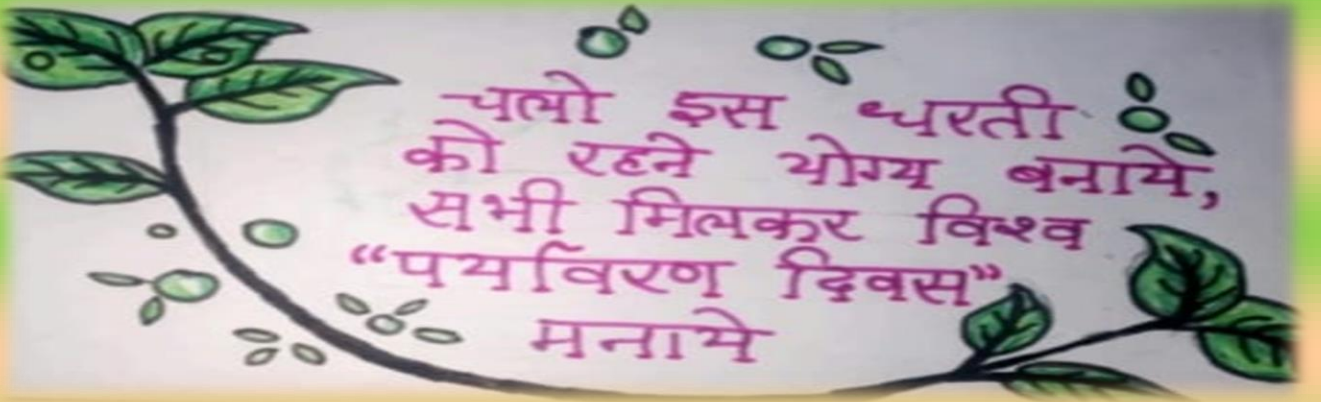 चलो इस धरती
को रहने योग्य बनाये,
सभी मिलकर विश्व
“पर्यावरण दिवस”
मनाये